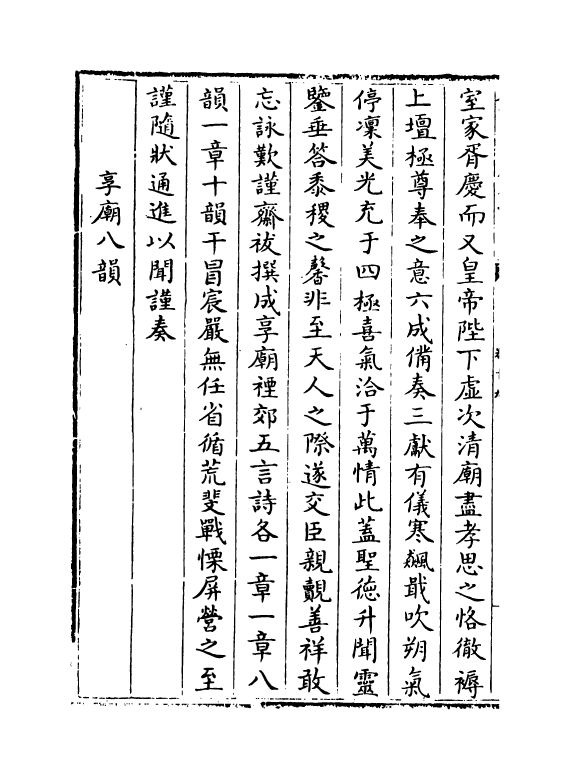 室家胥慶而又皇帝陛下虛次清廟盡孝思之恪徹褥
上壇極尊奉之意六成備奏三獻有儀寒飇戢吹朔氣
停凜美光充于四極喜氣洽于萬情此蓋聖德升聞靈
鑒垂答黍稷之馨非至天人之際遂交臣親覿善祥敢
忘詠歎謹齋祓撰成享廟禋郊五言詩各一章一章八
韻一章十韻干冒宸嚴無任省循荒斐戰慄屏營之至
謹隨狀通進以聞謹奏
享廟八韻